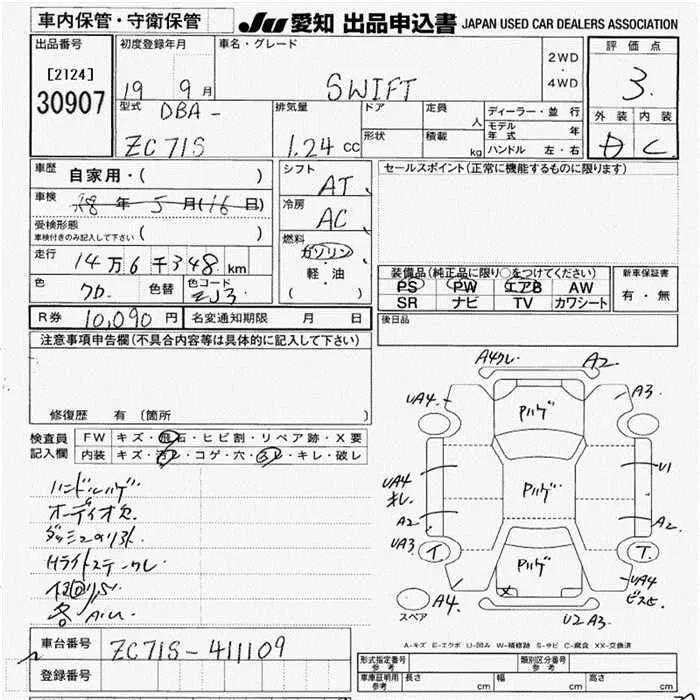 車内保管・守衛保管
JU 愛知 出品申込書 JAPAN USED CAR DEALERS ASSOCIATION
出品番号
[2124]
30907
初度登録年月
19 9 月
車名・グレード
SWIFT
2WD
・
4WD
評価点
3.
外装 内装
D C
型式 DBA-
ZC71S
排気量
1.24 cc
ドア
形状
定員 人
積載 kg
ディーラー・並行
モデル年式 年
ハンドル 左・右
車歴 自家用・( )
車検 年 5 月(16 日)
受検形態
車検付きのみ記入して下さい ( )
走行 14万6千348km
色 色替 色コード
ZJ3
シフト AT
冷房 AC
燃料
ガソリン
・
軽・油
( )
セールスポイント(正常に機能するものに限ります)
装備品(純正品に限り○をつけてください)
PS PW エアB AW
SR ナビ TV カワシート
新車保証書
有・無
R券 10,090 円 名変通知期限 月 日
後日品
注意事項申告欄(不具合内容等は具体的に記入して下さい)
修復歴 有 (箇所 )
検査員記入欄
FW キズ・飛石・ヒビ割・リペア跡・X要
内装 キズ・汚レ・コゲ・穴・スレ・キレ・破レ
ハンドルハゲ
オーディオ欠
Hライトステークレ
A4クレ A2
UA4 A3
Pハゲ
Pハゲ
Pハゲ
UA4 U1
A2 A2
UA3 T. T.
UA4
A4 U2 A3
スペア
A-キズ E-エクボ U-凹み W-補修跡 S-サビ C-腐食 XX-交換済
車台番号 ZC71S-411109
登録番号
形式指定番号 参考 類別区分番号 参考
車庫証明用 参考 長さ cm 幅 cm 高さ cm